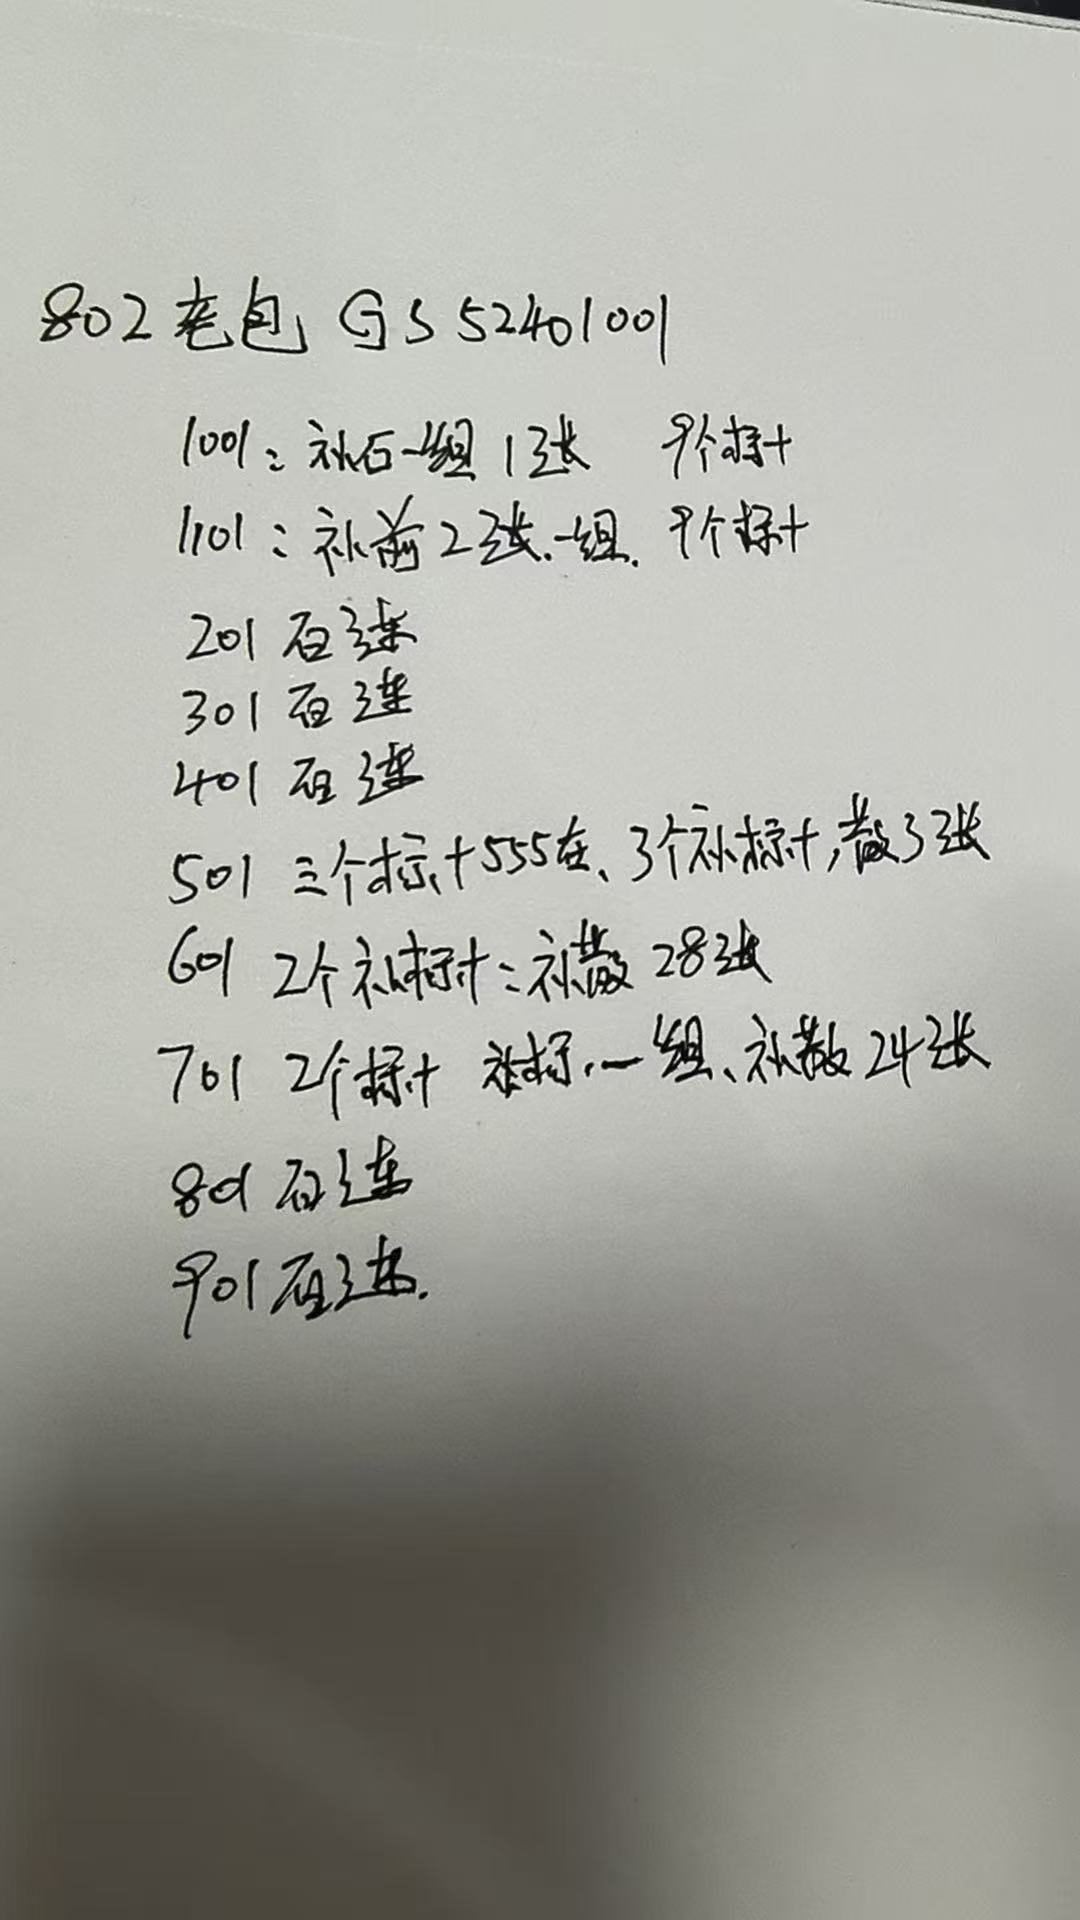 802老包 GS52401001
1001:补后一组1张 9个标十
1101:补前2张.一组. 9个标十
201 百连
301 百连
401 百连
501 三个标十555在、3个补标十,散3张
601 2个补标十:补散28张
701 2个标十 补标.一组、补散24张
801 百连
901 百连.